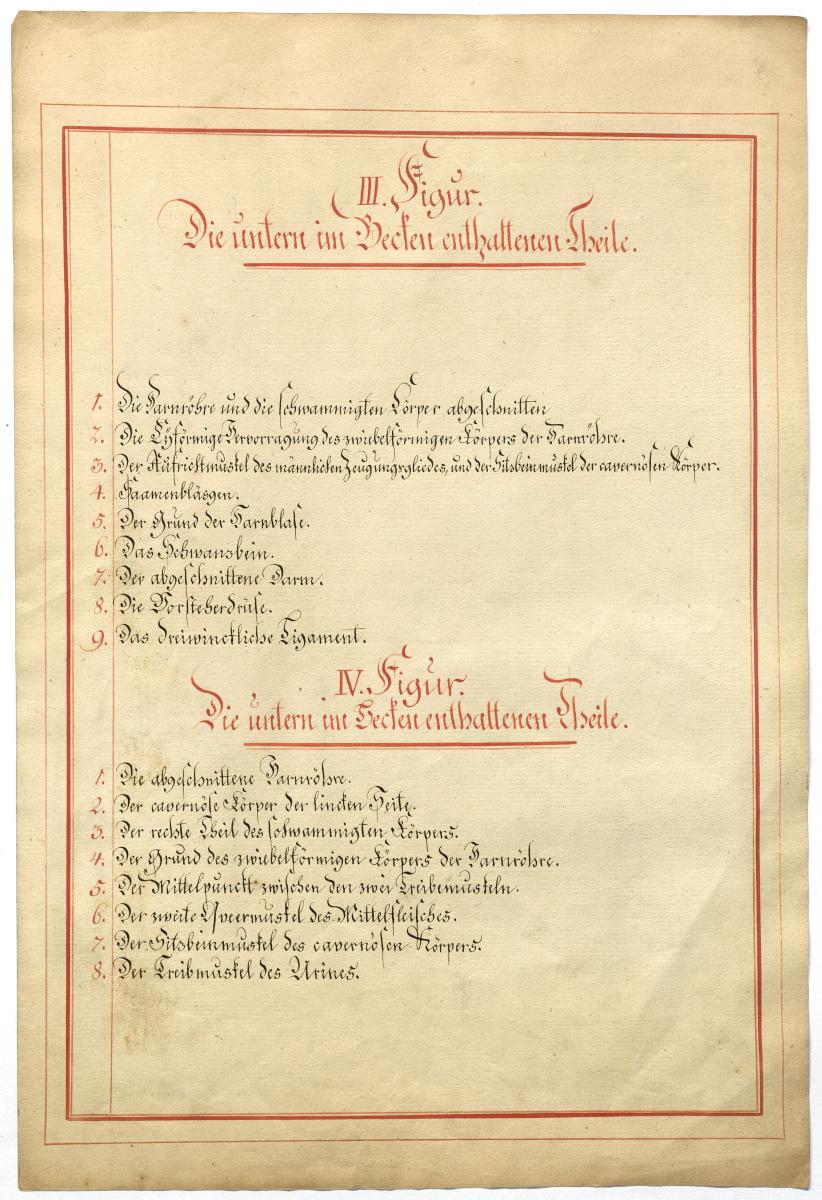 III. Figur.
Die untern im Becken enthaltenen Theile.
1. Die Harnröhre und die schwammigten Körper abgeschnitten
2. Die Eyförmige Hervorragung des zwiebelförmigen Körpers der Harnröhre.
3. Der Aufrichtmuskel des männlichen Zeugungsgliedes, und der Sitsbeinmuskel der cavernösen Körper.
4. Saamenbläsgen.
5. Der Grund der Harnblase.
6. Das Schwansbein.
7. Der abgeschnittene Darm.
8. Die Vorsteherdrüse.
9. Das dreiwinckliche Ligament.
IV. Figur.
Die untern im Becken enthaltenen Theile.
1. Die abgeschnittene Harnröhre.
2. Der cavernöse Körper der lincken Seite.
3. Der rechte Theil des schwammigten Körpers.
4. Der Grund des zwiebelförmigen Körpers der Harnröhre.
5. Der Mittelpunckt zwischen den zwei Treibemuskeln.
6. Der zweite Qveermuskel des Mittelfleisches.
7. Der Sitsbeinmuskel des cavernösen Körpers.
8. Der Treibmuskel des Urines.